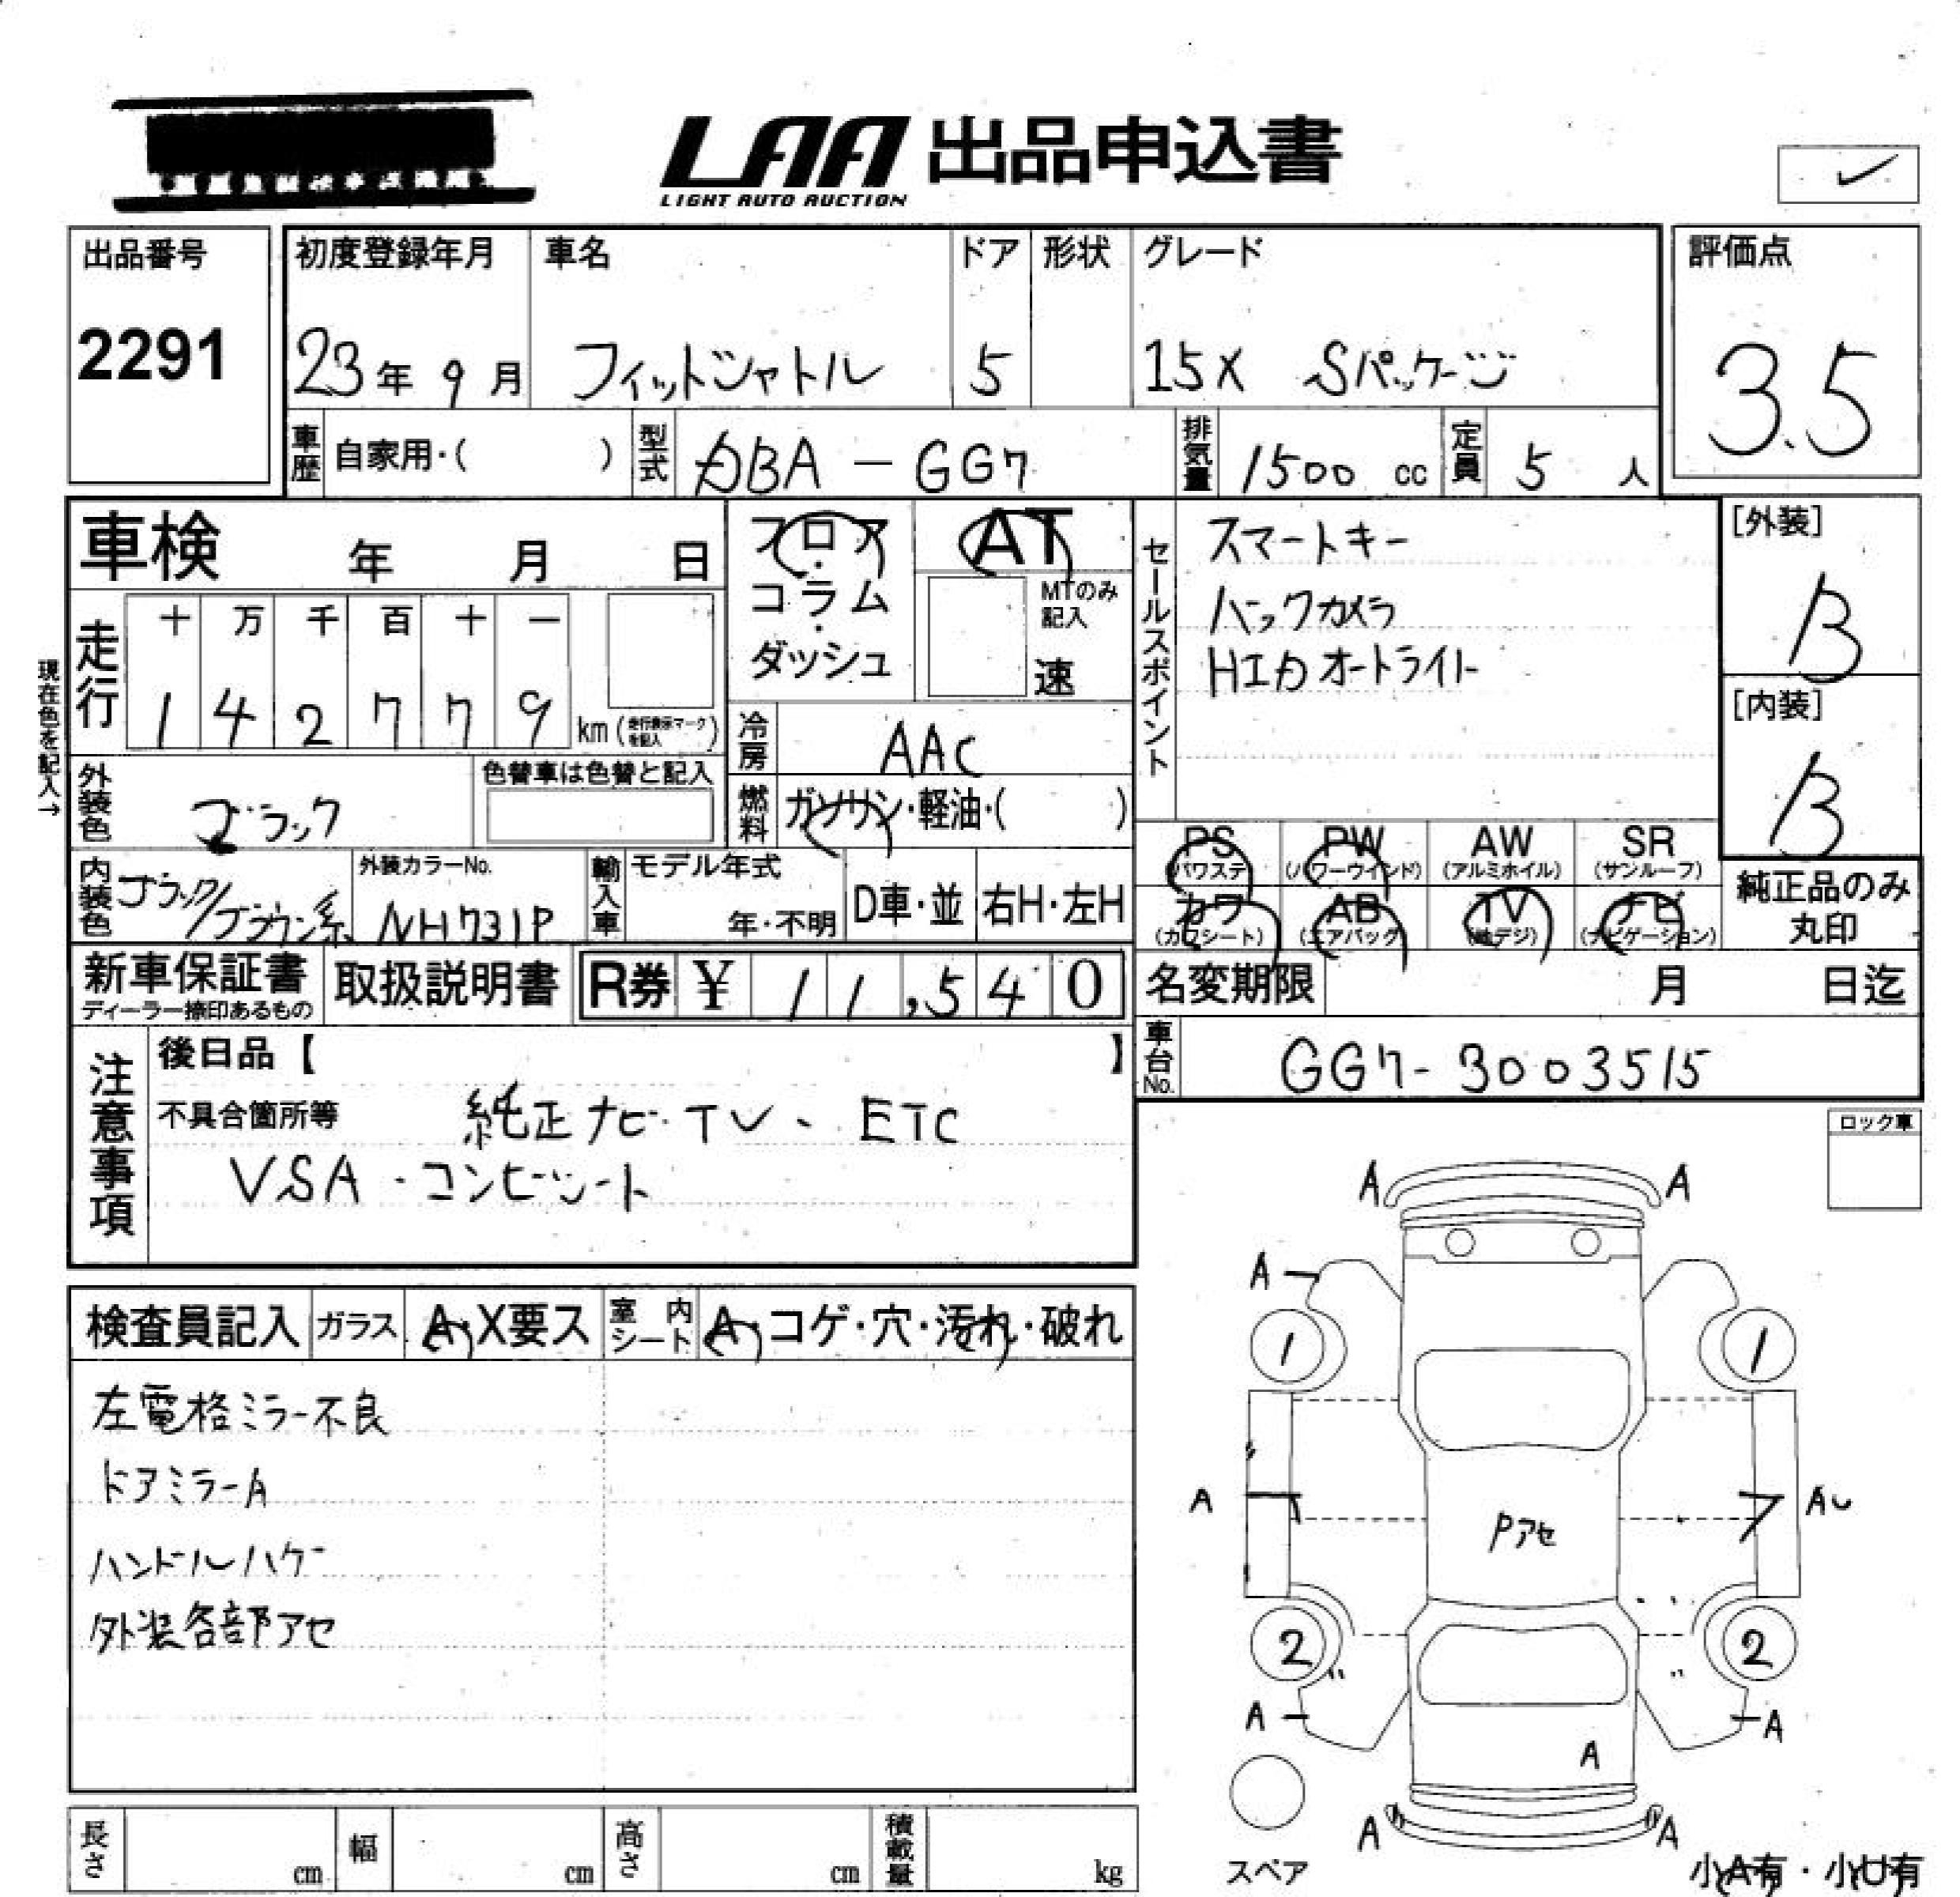 LAA 出品申込書
LIGHT AUTO AUCTION
出品番号
2291
初度登録年月
23年 9月
車名
フィットシャトル
ドア
5
形状
グレード
15X Sパッケージ
評価点
3.5
車歴 自家用・( )
型式 DBA-GG7
排気量 1500 cc
定員 5 人
車検 年 月 日
現在色を記入→
走行
十 万 千 百 十 一
1 4 2 7 7 9 km (走行表示マークを記入)
フロア・
コラム・
ダッシュ
AT
MTのみ記入
速
冷房 AAC
燃料 ガソリン・軽油・( )
外装色 ブラック
色替車は色替と記入
内装色 ブラック/ブラウン系
外装カラーNo.
NH731P
輸入車
モデル年式
年・不明
D車・並
右H・左H
セールスポイント
スマートキー
バックカメラ
HID オートライト
[外装]
B
[内装]
B
PS (パワステ)
PW (パワーウインド)
AW (アルミホイル)
SR (サンルーフ)
カワ (カワシート)
AB (エアバック)
TV (地デジ)
ナビ (ナビゲーション)
純正品のみ
丸印
新車保証書
ディーラー捺印あるもの
取扱説明書
R券 ¥ 11,540
名変期限 月 日迄
車台No. GG7-3003515
注意事項
後日品【 】
不具合箇所等 純正ナビ・TV、ETC
VSA・コンビシート
ロック車
検査員記入
ガラス A・X要ス
室内シート A・コゲ・穴・汚れ・破れ
左電格ミラー不良
ドアミラーA
ハンドルハゲ
外装各部アセ
A A
A
1 1
A AU
Pアセ
2 2
A A
A
A A
スペア
小A有・小U有
長さ cm
幅 cm
高さ cm
積載量 kg